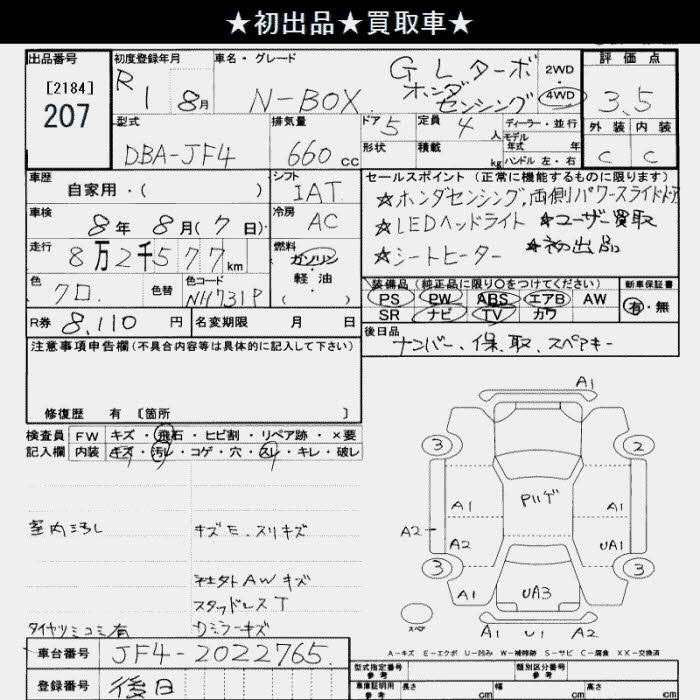 ★初出品★買取車★
出品番号 初度登録年月 車名・グレード 評価点
[2184]
207
R1 8月
N-BOX GLターボ ホンダセンシング
2WD・4WD
3.5
外装 内装
C C
型式 排気量 ドア 定員 ディーラー・並行
DBA-JF4 660cc 5 4人
モデル年式 年
形状 積載 kg ハンドル 左・右
車歴 シフト
自家用・( ) IAT
車検 冷房
8年 8月(7日) AC
走行 燃料
8万2千577km ガソリン・軽油( )
色 色替 色コード
クロ. NH731P
R券 8,110円 名変期限 月 日
セールスポイント(正常に機能するものに限ります)
☆ホンダセンシング,両側パワースライドドア
☆LEDヘッドライト ★ユーザー買取
☆シートヒーター ★初出品
装備品(純正品に限り○をつけてください) 新車保証書
PS PW ABS エアB AW 有・無
SR ナビ TV カワ
後日品
ナンバー、保、取、スペアキー
注意事項申告欄(不具合内容等は具体的に記入して下さい)
修復歴 有 [箇所 ]
検査員 FW キズ・飛石・ヒビ割・リペア跡・×要
記入欄 内装 キズ・汚レ・コゲ・穴・スレ・キレ・破レ
キズE、スリキズ
社外AWキズ
スタッドレスT
タイヤツミコミ有
車台番号 JF4-2022765
登録番号 後日
A1
3 2
A1 Pルゲ A1
A2 A2 UA1
3 3
A1 UA3 A1
スペア
A1 U1 A2
A-キズ E-エクボ U-凹み W-補修跡 S-サビ C-腐食 XX-交換済
型式指定番号参考 類別区分番号参考
車庫証明用参考 長さ cm 幅 cm 高さ cm